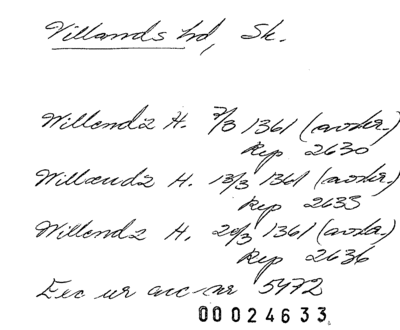 Villands hd, Sk.
Willendz H. 7/3 1361 (avskr.)
Rep 2630
Willændz H. 13/3 1361 (avskr.)
Rep 2633
Willendz H. 20/3 1361 (avskr.)
Rep 2636
Exc ur acc-nr 5972
00024633